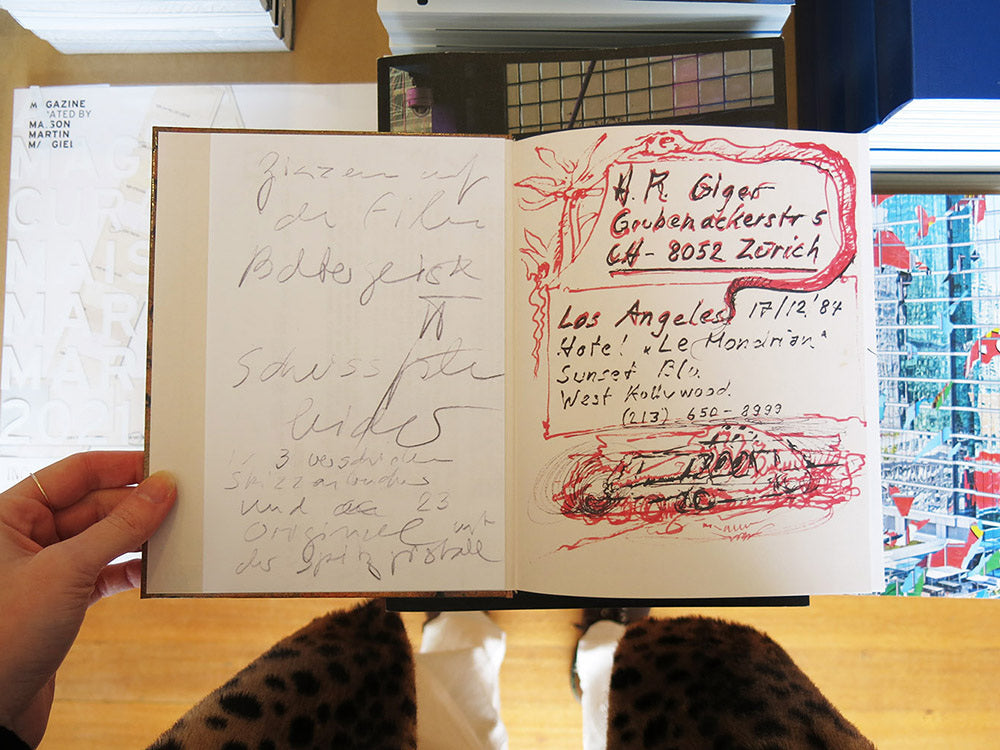 MAGAZINE
CURATED BY
MAISON
MARTIN
MARGIELA
MAG
CUR
MAIS
MAR
MAR
2021
der Film
Poltergeist
II
leider
3 verschiedene
Skizzenbücher
und 23
Original mit
der Spitzpistole
H. R. Giger
Grubenackerstr 5
CH - 8052 Zürich
Los Angeles 17/12 '84
Hotel „Le Mondrian"
Sunset Blv.
West Hollywood.
(213) 650-8999